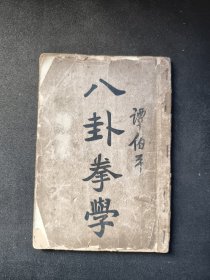 八卦拳學
譚伯平